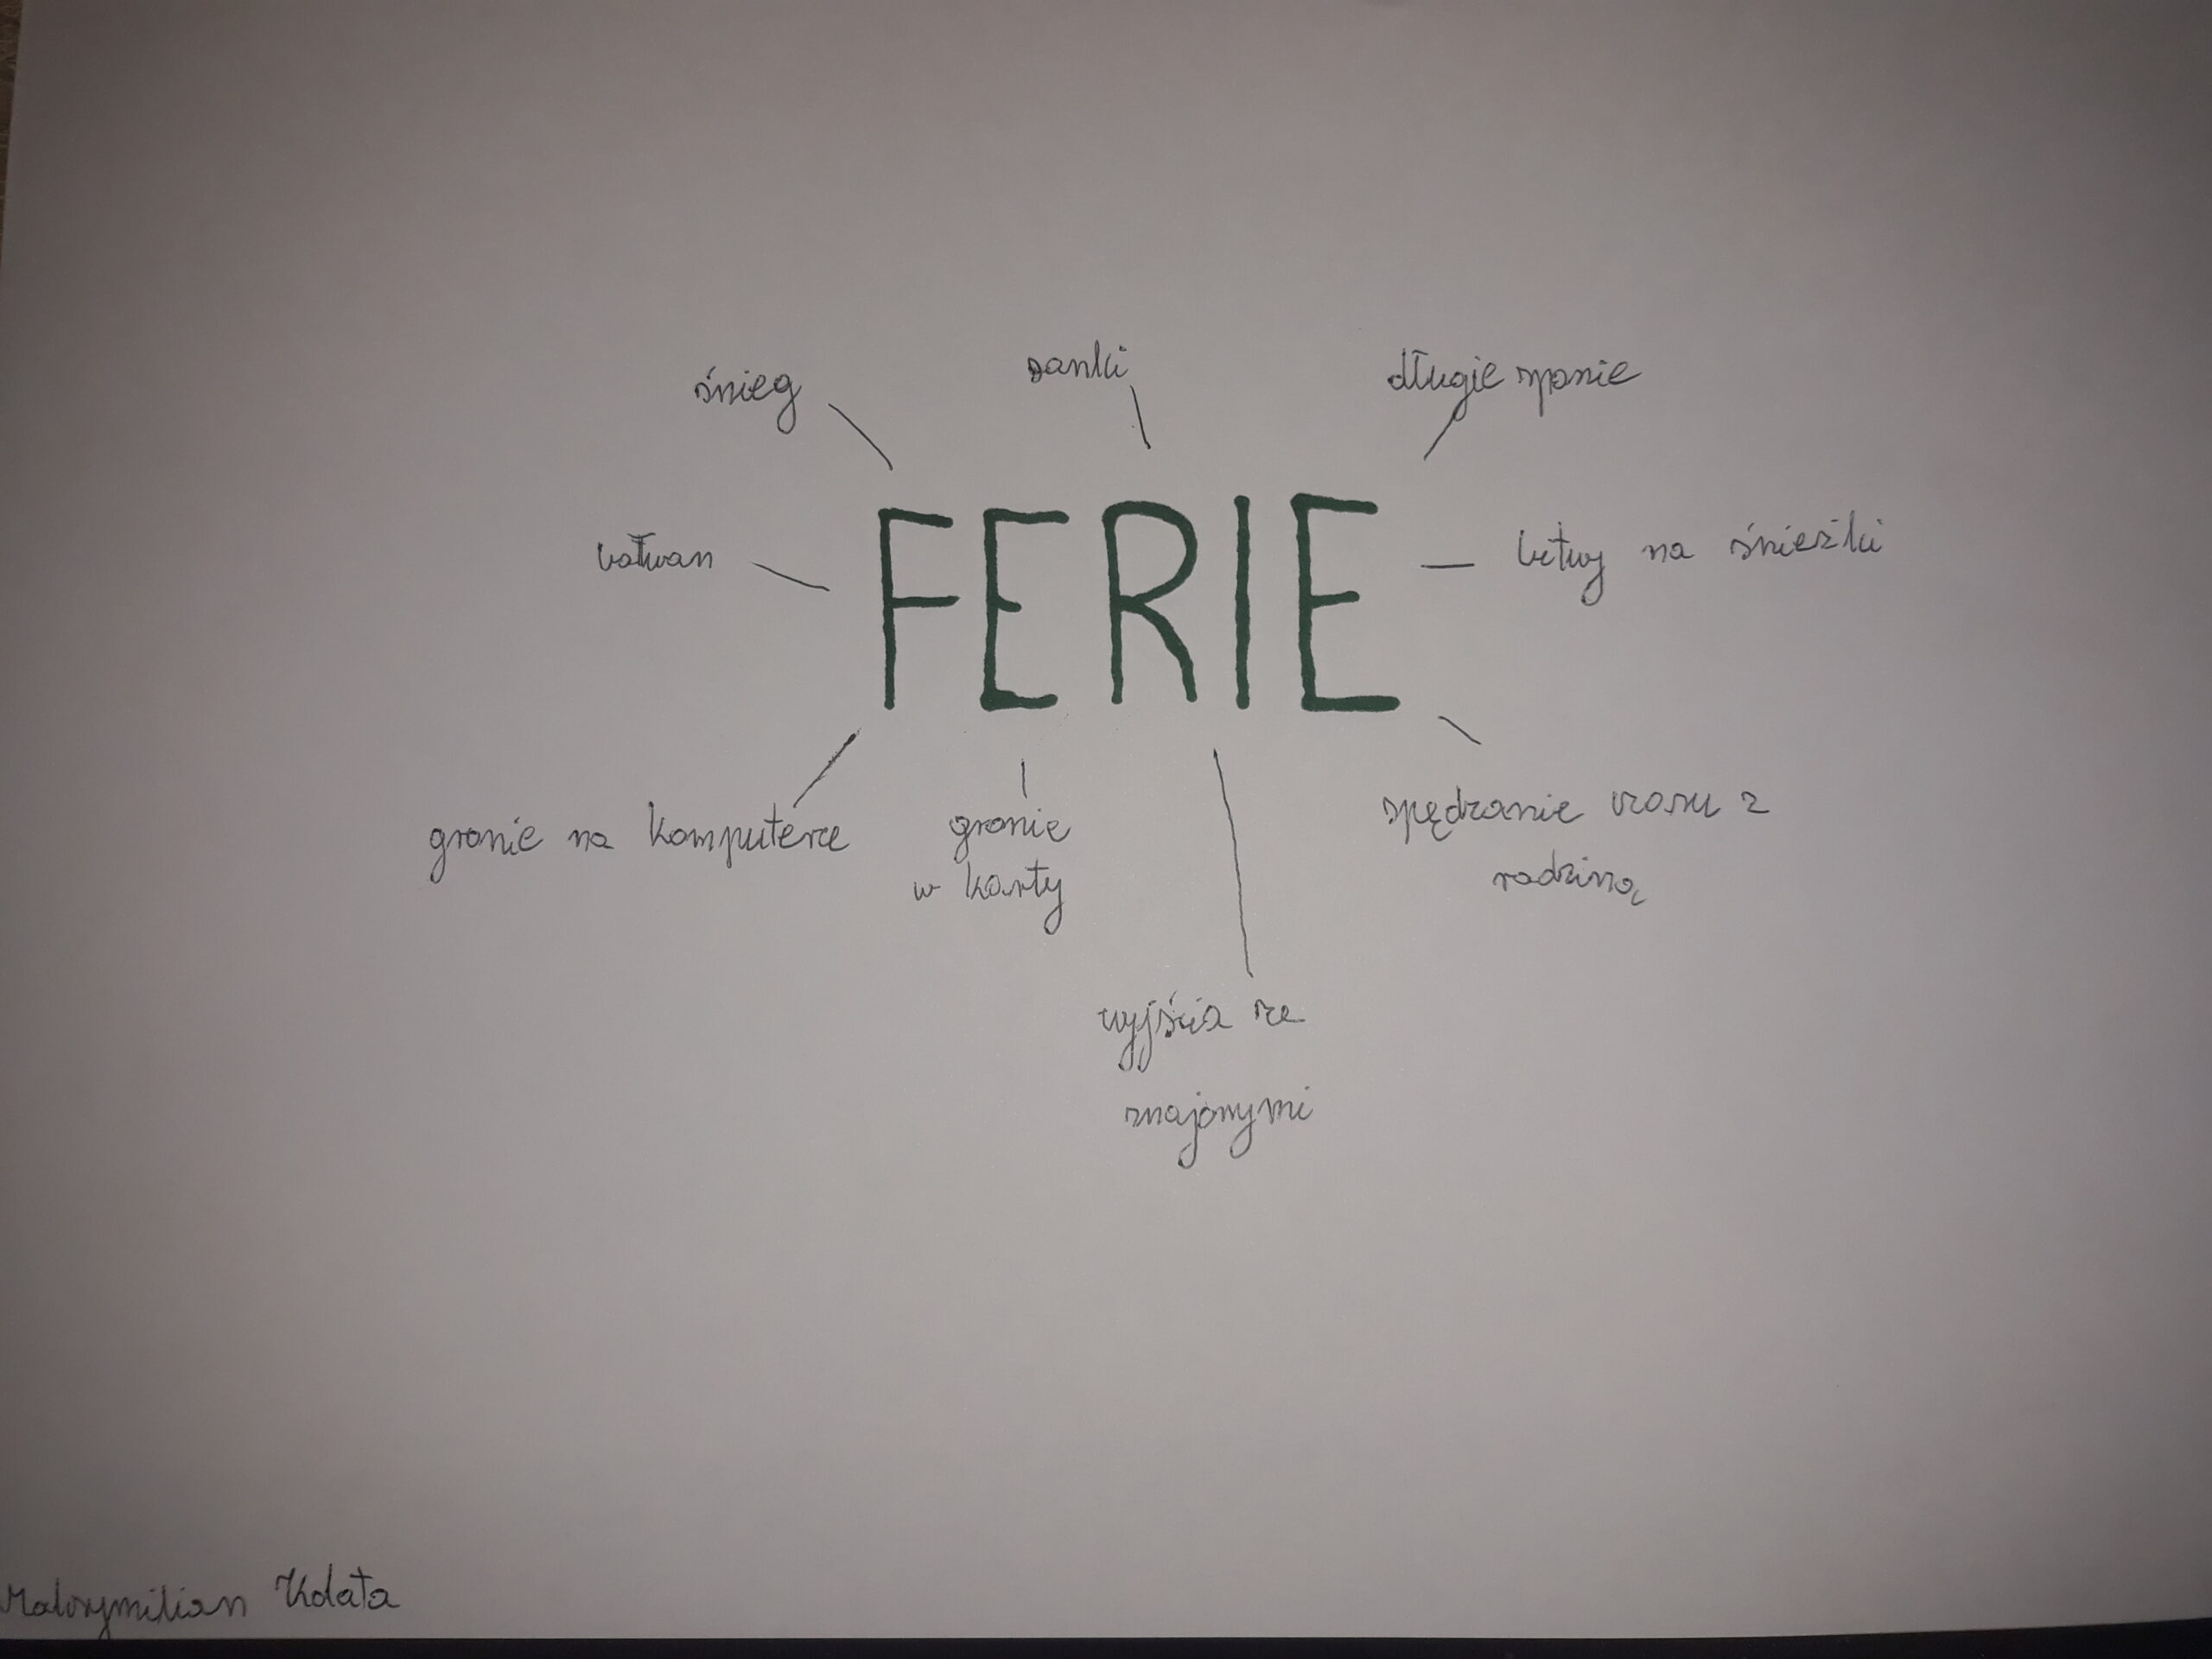 śnieg
sanki
długie spanie
bałwan
FERIE
bitwy na śnieżki
granie na komputerze
granie
w karty
spędzanie czasu z
rodziną
wyjścia ze
znajomymi
Maksymilian